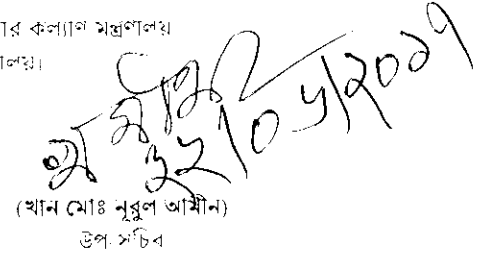 র কল্যাণ মন্ত্রণালয়
লয়।
(খান মোঃ নূরুল আমীন)
উপ সচিব